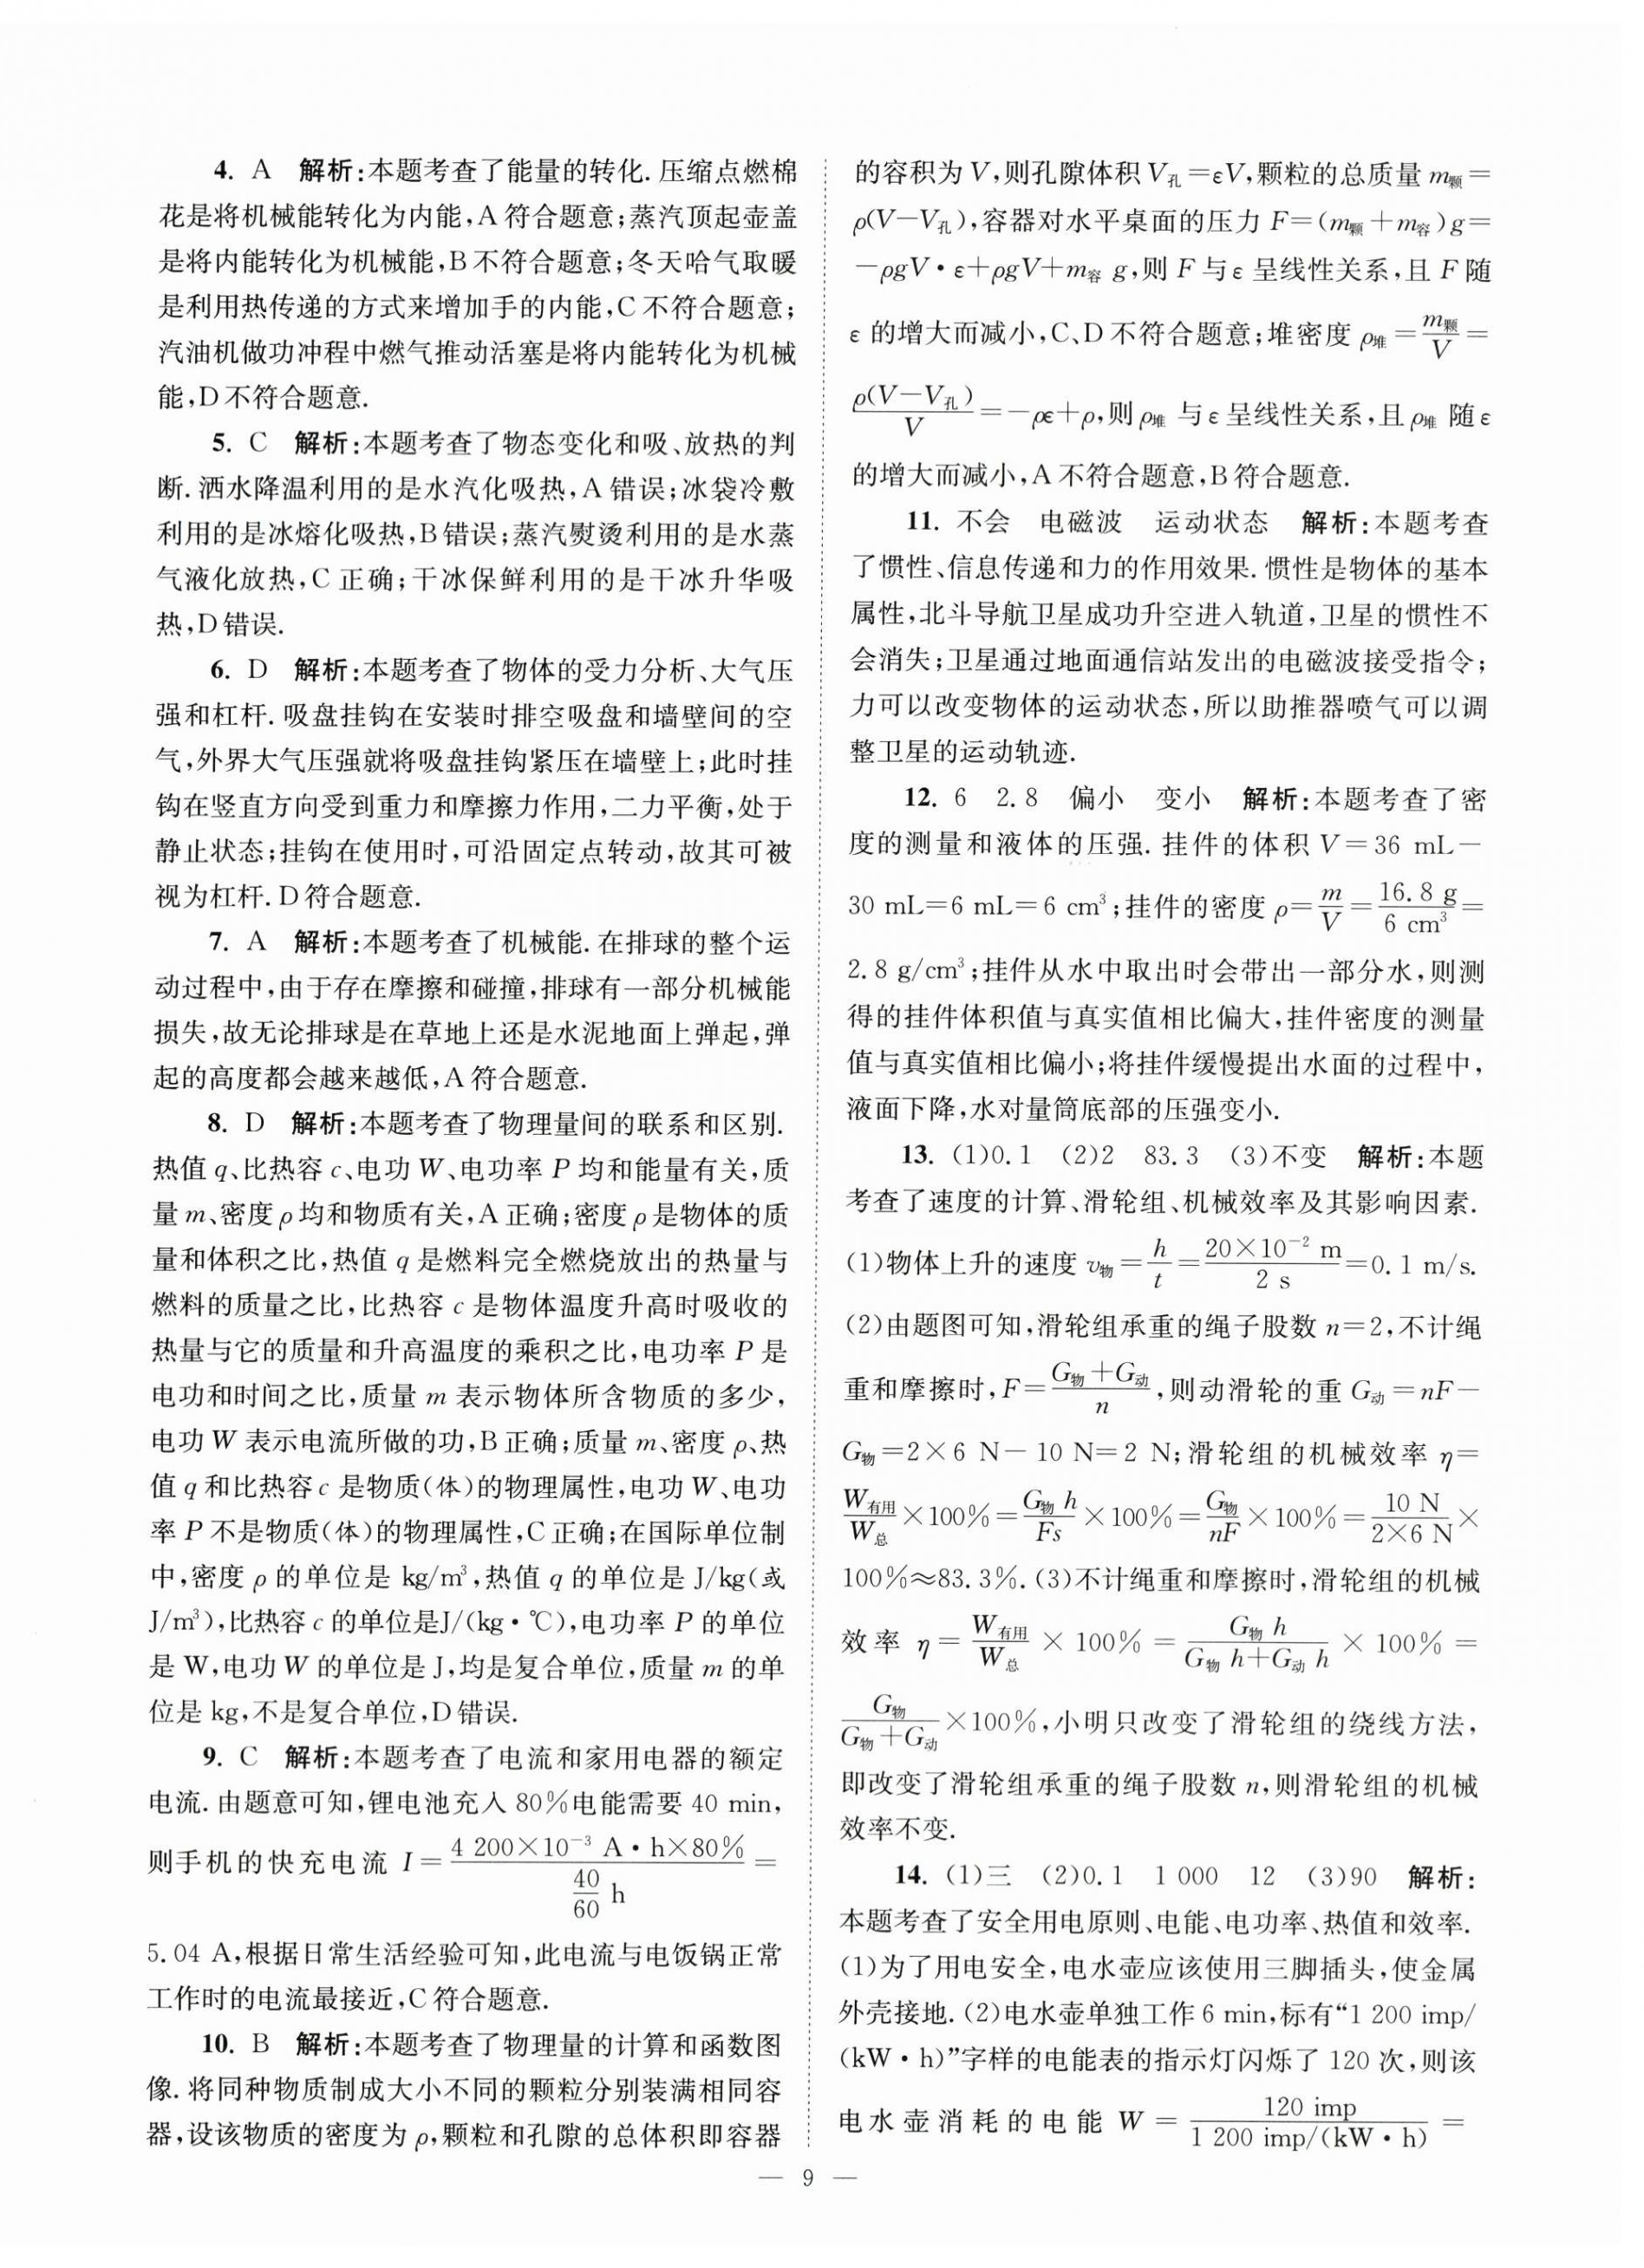 4. A 解析:本题考查了能量的转化. 压缩点燃棉
花是将机械能转化为内能,A 符合题意;蒸汽顶起壶盖
是将内能转化为机械能,B 不符合题意;冬天哈气取暖
是利用热传递的方式来增加手的内能,C 不符合题意;
汽油机做功冲程中燃气推动活塞是将内能转化为机械
能,D 不符合题意.
5. C 解析:本题考查了物态变化和吸、放热的判
断. 洒水降温利用的是水汽化吸热,A 错误;冰袋冷敷
利用的是冰熔化吸热,B 错误;蒸汽熨烫利用的是水蒸
气液化放热,C 正确;干冰保鲜利用的是干冰升华吸
热,D 错误.
6. D 解析:本题考查了物体的受力分析、大气压
强和杠杆. 吸盘挂钩在安装时排空吸盘和墙壁间的空
气,外界大气压强就将吸盘挂钩紧压在墙壁上;此时挂
钩在竖直方向受到重力和摩擦力作用,二力平衡,处于
静止状态;挂钩在使用时,可沿固定点转动,故其可被
视为杠杆. D 符合题意.
7. A 解析:本题考查了机械能. 在排球的整个运
动过程中,由于存在摩擦和碰撞,排球有一部分机械能
损失,故无论排球是在草地上还是水泥地面上弹起,弹
起的高度都会越来越低,A 符合题意.
8. D 解析:本题考查了物理量间的联系和区别.
热值 q、比热容 c、电功 W、电功率 P 均和能量有关,质
量 m、密度 ρ 均和物质有关,A 正确;密度 ρ 是物体的质
量和体积之比,热值 q 是燃料完全燃烧放出的热量与
燃料的质量之比,比热容 c 是物体温度升高时吸收的
热量与它的质量和升高温度的乘积之比,电功率 P 是
电功和时间之比,质量 m 表示物体所含物质的多少,
电功 W 表示电流所做的功,B 正确;质量 m、密度 ρ、热
值 q 和比热容 c 是物质(体)的物理属性,电功 W、电功
率 P 不是物质(体)的物理属性,C 正确;在国际单位制
中,密度 ρ 的单位是 kg/m³,热值 q 的单位是 J/kg(或
J/m³),比热容 c 的单位是J/(kg·℃),电功率 P 的单位
是 W,电功 W 的单位是 J,均是复合单位,质量 m 的单
位是 kg,不是复合单位,D 错误.
9. C 解析:本题考查了电流和家用电器的额定
电流. 由题意可知,锂电池充入 80%电能需要 40 min,
则手机的快充电流 I=(4 200×10⁻³ A·h×80%)/((40/60) h)=
5.04 A,根据日常生活经验可知,此电流与电饭锅正常
工作时的电流最接近,C 符合题意.
10. B 解析:本题考查了物理量的计算和函数图
像. 将同种物质制成大小不同的颗粒分别装满相同容
器,设该物质的密度为 ρ,颗粒和孔隙的总体积即容器
的容积为 V,则孔隙体积 V孔=εV,颗粒的总质量 m颗=
ρ(V−V孔),容器对水平桌面的压力 F=(m颗+m容)g=
−ρgV·ε+ρgV+m容 g,则 F 与 ε 呈线性关系,且 F 随
ε 的增大而减小,C、D 不符合题意;堆密度 ρ堆=m颗/V=
ρ(V−V孔)/V=−ρε+ρ,则 ρ堆 与 ε 呈线性关系,且 ρ堆 随 ε
的增大而减小,A 不符合题意,B 符合题意.
11. 不会 电磁波 运动状态 解析:本题考查
了惯性、信息传递和力的作用效果. 惯性是物体的基本
属性,北斗导航卫星成功升空进入轨道,卫星的惯性不
会消失;卫星通过地面通信站发出的电磁波接受指令;
力可以改变物体的运动状态,所以助推器喷气可以调
整卫星的运动轨迹.
12. 6 2.8 偏小 变小 解析:本题考查了密
度的测量和液体的压强. 挂件的体积 V=36 mL−
30 mL=6 mL=6 cm³;挂件的密度 ρ=m/V=16.8 g/6 cm³=
2.8 g/cm³;挂件从水中取出时会带出一部分水,则测
得的挂件体积值与真实值相比偏大,挂件密度的测量
值与真实值相比偏小;将挂件缓慢提出水面的过程中,
液面下降,水对量筒底部的压强变小.
13. (1)0.1 (2)2 83.3 (3)不变 解析:本题
考查了速度的计算、滑轮组、机械效率及其影响因素.
(1)物体上升的速度 v物=h/t=(20×10⁻² m)/(2 s)=0.1 m/s.
(2)由题图可知,滑轮组承重的绳子股数 n=2,不计绳
重和摩擦时,F=(G物+G动)/n,则动滑轮的重 G动=nF−
G物=2×6 N−10 N=2 N;滑轮组的机械效率 η=
W有用/W总×100%=G物 h/Fs×100%=G物/nF×100%=10 N/(2×6 N)×
100%≈83.3%. (3)不计绳重和摩擦时,滑轮组的机械
效率 η=W有用/W总×100%=G物 h/(G物 h+G动 h)×100%=
G物/(G物+G动)×100%,小明只改变了滑轮组的绕线方法,
即改变了滑轮组承重的绳子股数 n,则滑轮组的机械
效率不变.
14. (1)三 (2)0.1 1 000 12 (3)90 解析:
本题考查了安全用电原则、电能、电功率、热值和效率.
(1)为了用电安全,电水壶应该使用三脚插头,使金属
外壳接地. (2)电水壶单独工作 6 min,标有“1 200 imp/
(kW·h)”字样的电能表的指示灯闪烁了 120 次,则该
电水壶消耗的电能 W=120 imp/(1 200 imp/(kW·h))=
— 9 —